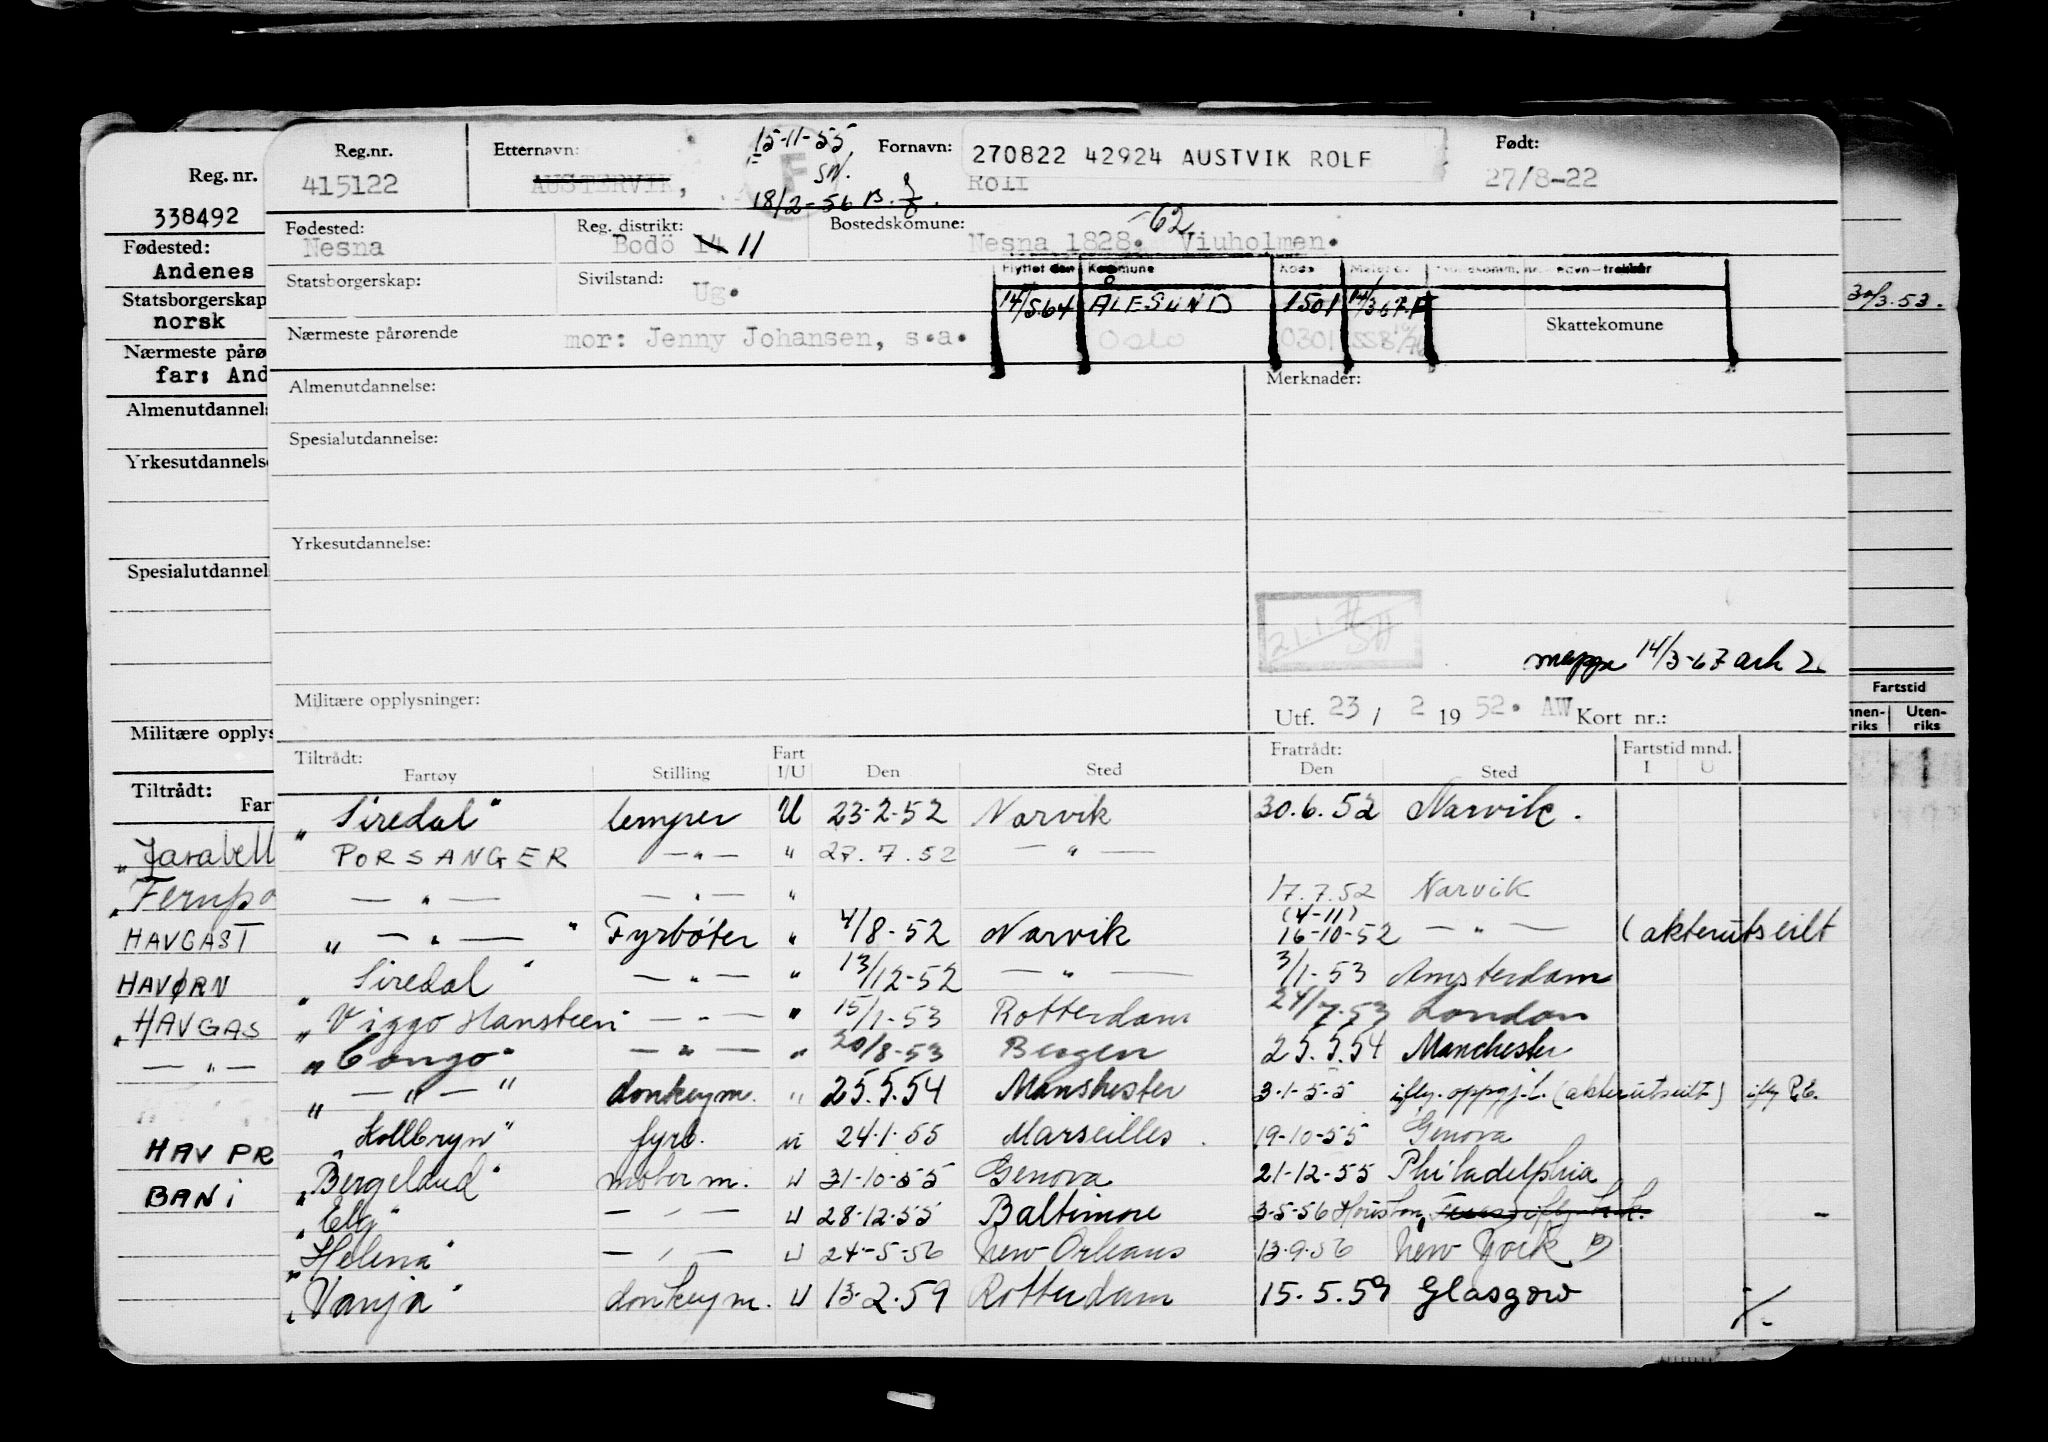 Reg.nr. Etternavn: 15-11-55 Fornavn: 270822 42924 AUSTVIK ROLF Født:
415122 AUSTERVIK, SM. Rolf 27/8-22
18/2-56 B.
Fødested: Reg. distrikt: Bostedskomune: -62
Nesna Bodö 14 11 Nesna 1828. Viuholmen.
Statsborgerskap: Sivilstand: Ug.
Flyttet den Kommune Kode
14/5.64 ÅLESUND 1501 14/3 67.F
Oslo 0301
Nærmeste pårørende mor: Jenny Johansen, s.a. Skattekomune
Almenutdannelse: Merknader:
Spesialutdannelse:
Yrkesutdannelse:
mappe 14/3-67 ark
Militære opplysninger:
Utf. 23 / 2 19 52. AW Kort nr.:
Tiltrådt: Fart Fratrådt: Fartstid mnd.
Fartøy Stilling I/U Den Sted Den Sted I U
"Siredal" lemper U 23-2-52 Narvik 30.6.52 Narvik.
PORSANGER — " — " 27.7.52 — " —
— " — — " — " 17.7.52 Narvik
" — " — " Fyrbøter " 4/8-52 Narvik (4-11) 16-10-52 — " — (akterutseilt
"Siredal" — " — " 13/12-52 — " — 3/1-53 Amsterdam
"Viggo Hansteen" — " — " 15/1-53 Rotterdam 24/7.53 London
"Congo" — " — " 20/8-53 Bergen 25.5.54 Manchester
" — " — " donkeym. " 25.5.54 Manshester 3-1-55 iflg. oppgj.l. (akterutseilt)
"Hollbryn" fyrb. U 24.1.55 Marseilles. 19-10-55 Genova
"Bergeland" motorm. U 31-10-55 Genova 21-12-55 Philadelphia
"Elg" — " — U 28-12-55 Baltimore 3-5-56 Houston,
"Helena" — " — U 24-5-56 New Orleans 13.9.56 New York
"Vanja" donkeym. U 13.2.59 Rotterdam 15.5.59 Glasgow
Reg. nr.
338492
Fødested:
Andenes
Statsborgerskap
norsk
Nærmeste påro
far: And
Almenutdannels
Yrkesutdannelse
Spesialutdannel
Militære opplys
Tiltrådt:
Far
"Jarabell
"Fernpo
HAVGAST
HAVØRN
"HAVGAS
— " —
HAV PR
BANI
30/3.53.
Fartstid
nnen-riks Uten-riks
1